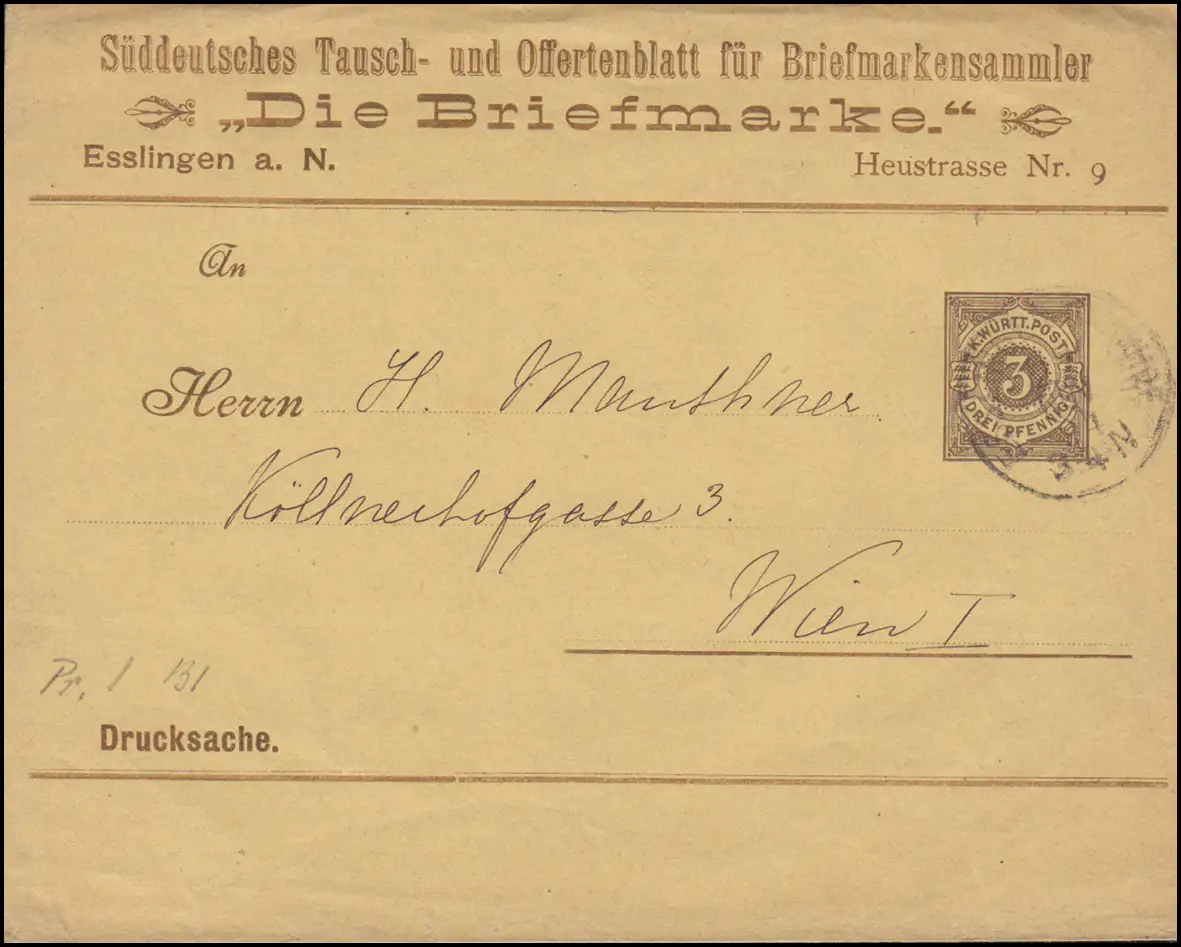 Süddeutsches Tausch- und Offertenblatt für Briefmarkensammler
„Die Briefmarke.“
Esslingen a. N. Heustrasse Nr. 9
An
K. WÜRTT. POST
3
DREI PFENNIG
Herrn H. Mauthner
Köllnerhofgasse 3.
Wien I
Pr. 1 131
Drucksache.